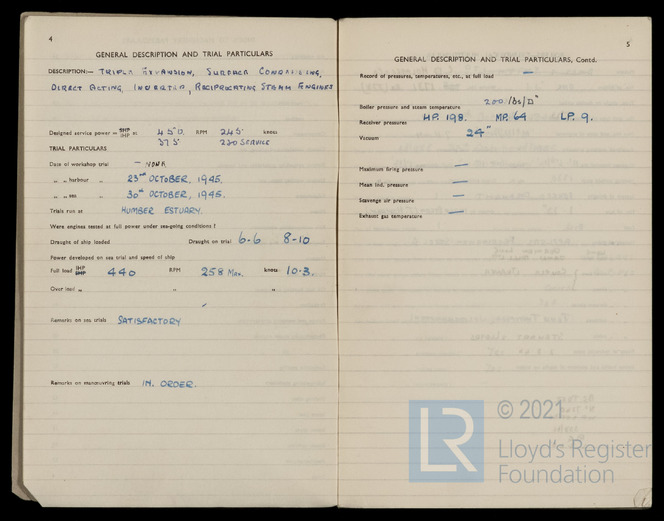 4
GENERAL DESCRIPTION AND TRIAL PARTICULARS
DESCRIPTION:— TRIPLE EXPANSION, SURFACE CONDENSING,
DIRECT ACTING, INVERTED, RECIPROCATING STEAM ENGINES
Designed service power — BHP IHP at 450. RPM 245 knots
375 230 SERVICE
TRIAL PARTICULARS
Date of workshop trial — NONE
„ „ harbour „ 23rd OCTOBER, 1945.
„ „ sea „ 30th OCTOBER, 1945.
Trials run at HUMBER ESTUARY.
Were engines tested at full power under sea-going conditions?
Draught of ship loaded Draught on trial 6-6 8-10
Power developed on sea trial and speed of ship
Full load IHP BHP 440 RPM 258 Max. knots 10.3.
Over load „ „ „
Remarks on sea trials SATISFACTORY
Remarks on manœuvring trials IN ORDER.
5
GENERAL DESCRIPTION AND TRIAL PARTICULARS, Contd.
Record of pressures, temperatures, etc., at full load —
Boiler pressure and steam temperature 200 lbs/□"
Receiver pressures HP. 198. MP. 64 LP. 9.
Vacuum 24"
Maximum firing pressure —
Mean ind. pressure —
Scavenge air pressure —
Exhaust gas temperature —
LR © 2021
Lloyd's Register
Foundation